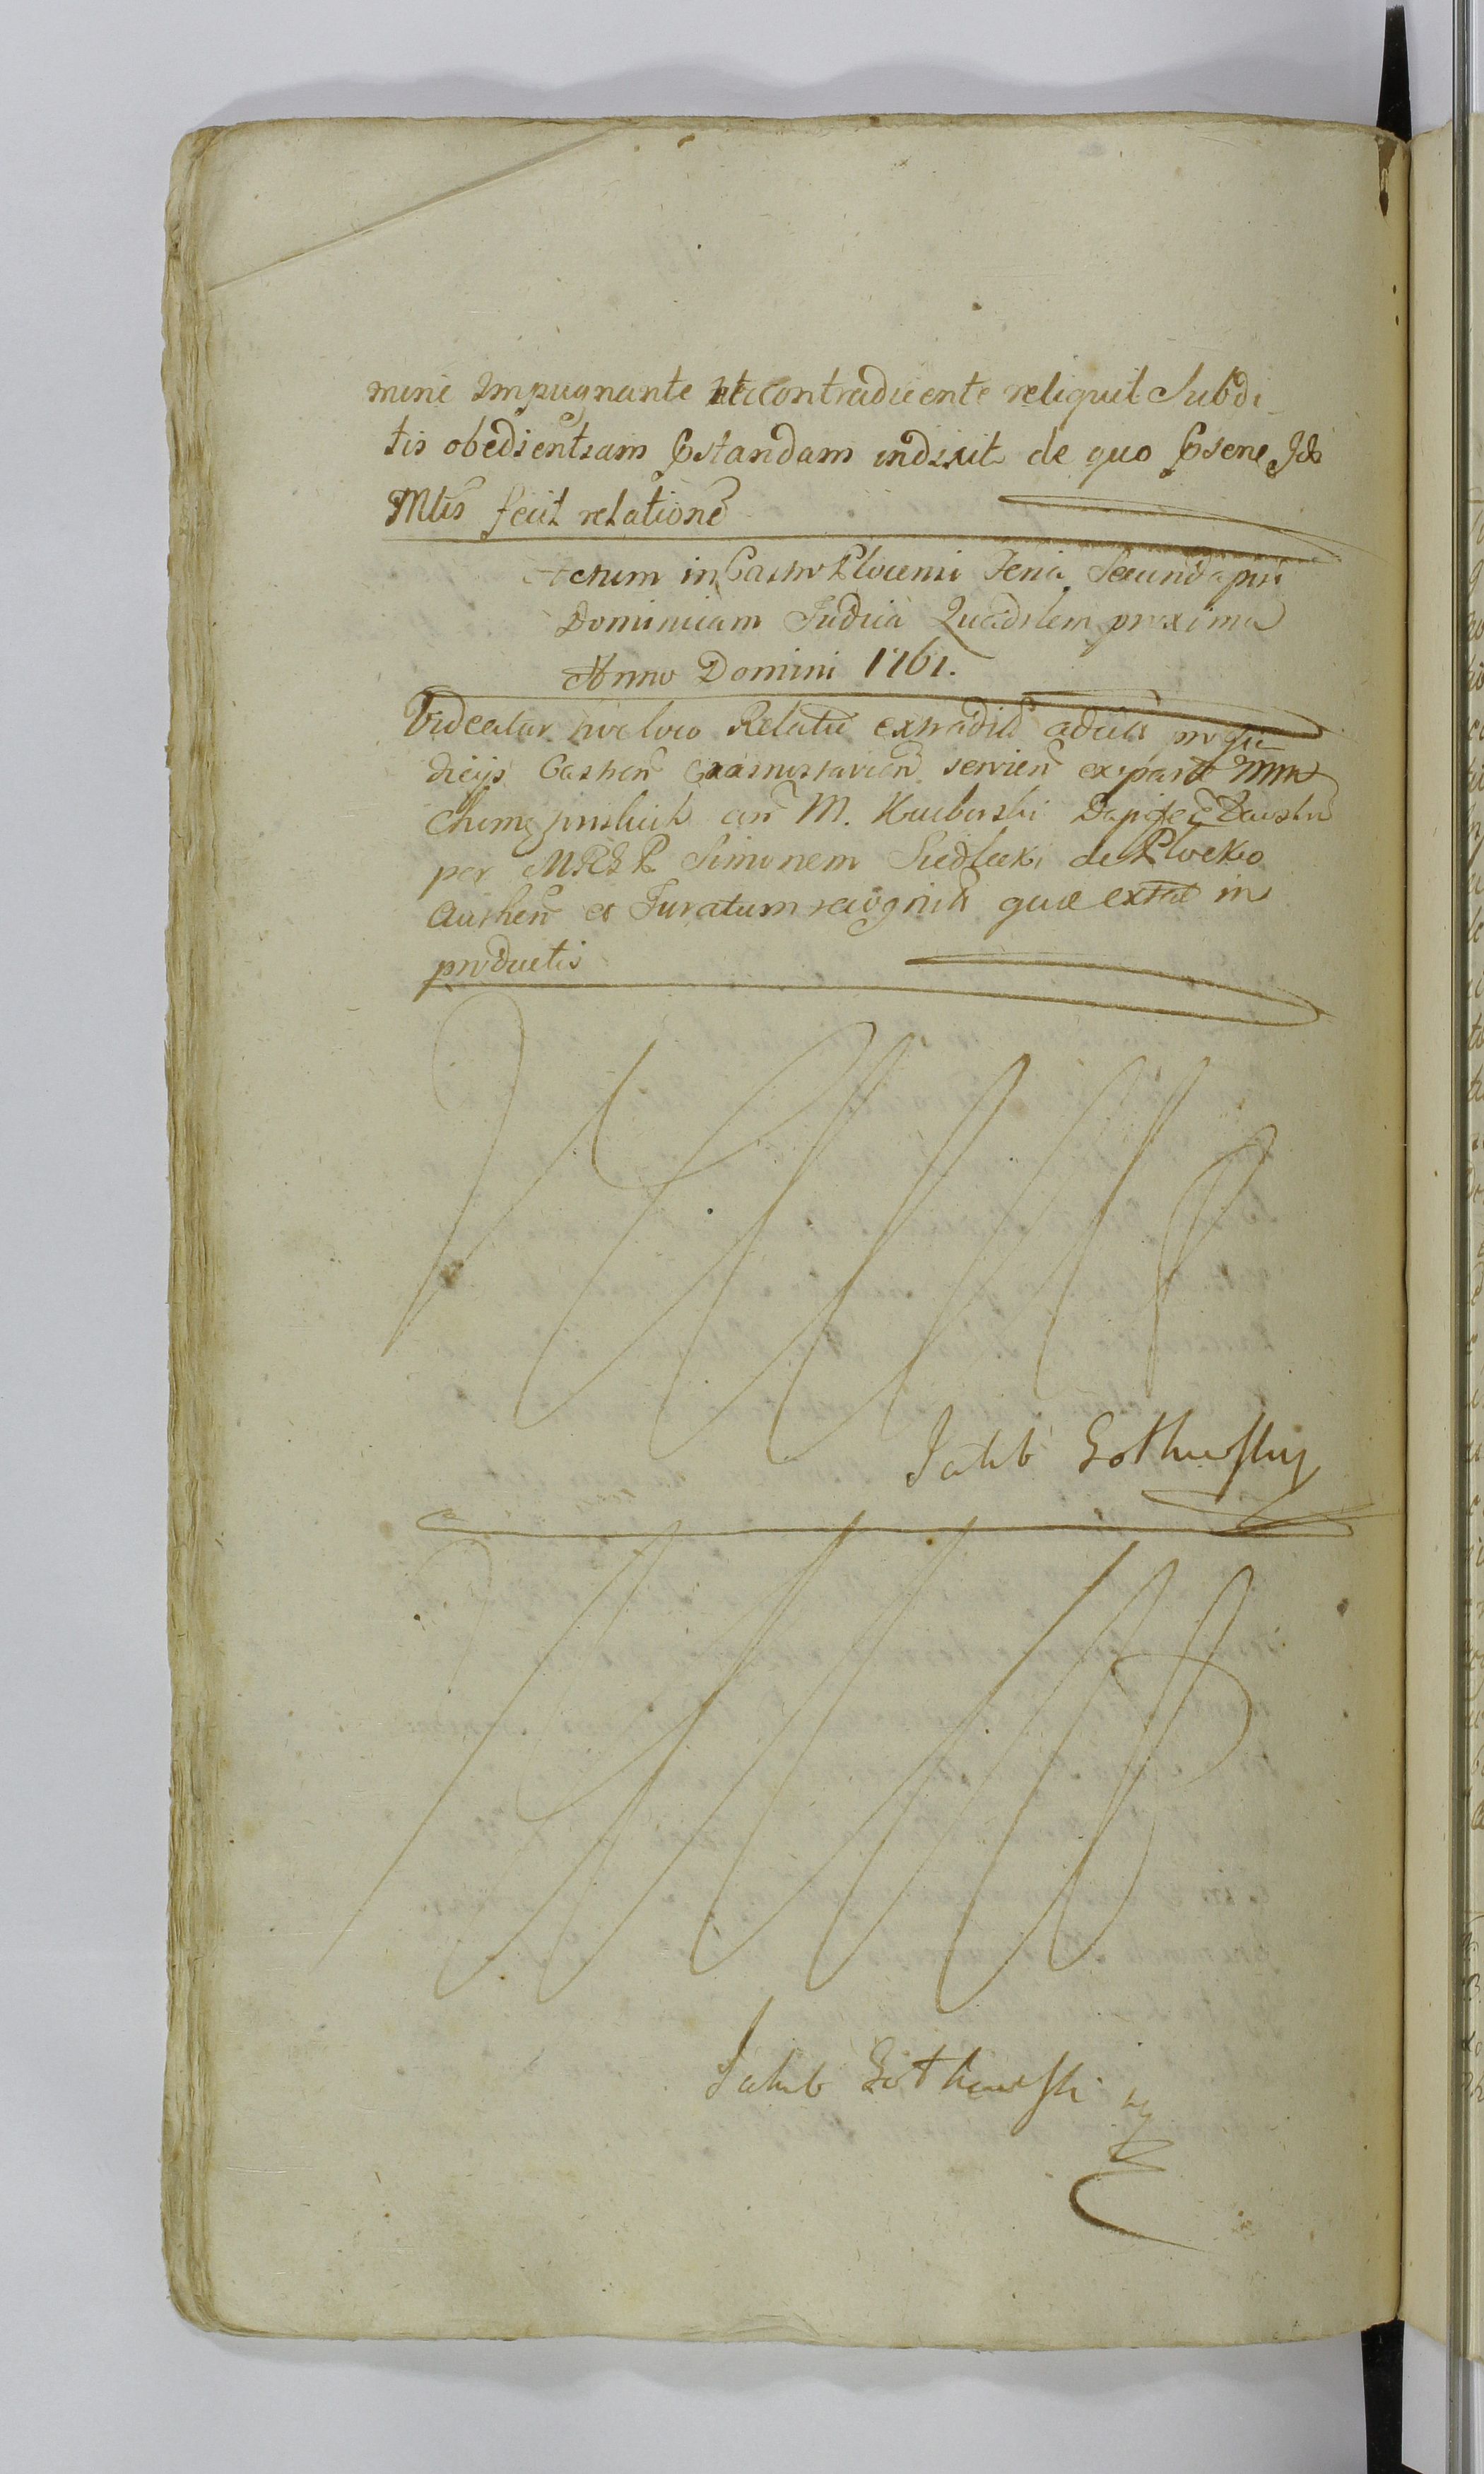 mine Impugnante et contradicente reliquit Subdi
tis obedientiam Pstandam indixit de quo Psene Jdē
Mtis fecit relationē
Actum in Castro Plocensi Feria Secunda pst
Dominicam Judica Quadrlem proxima
Anno Domini 1761.
Videatur hoc loco Relatio extradit
dicijs Castren servien ex parte
M. Dapife
per Simonem Siedlecki de Plocko
Authen et Juratum recognita quæ extat in
productis
Jakub Gotkowsky
Jakub Gotkowski